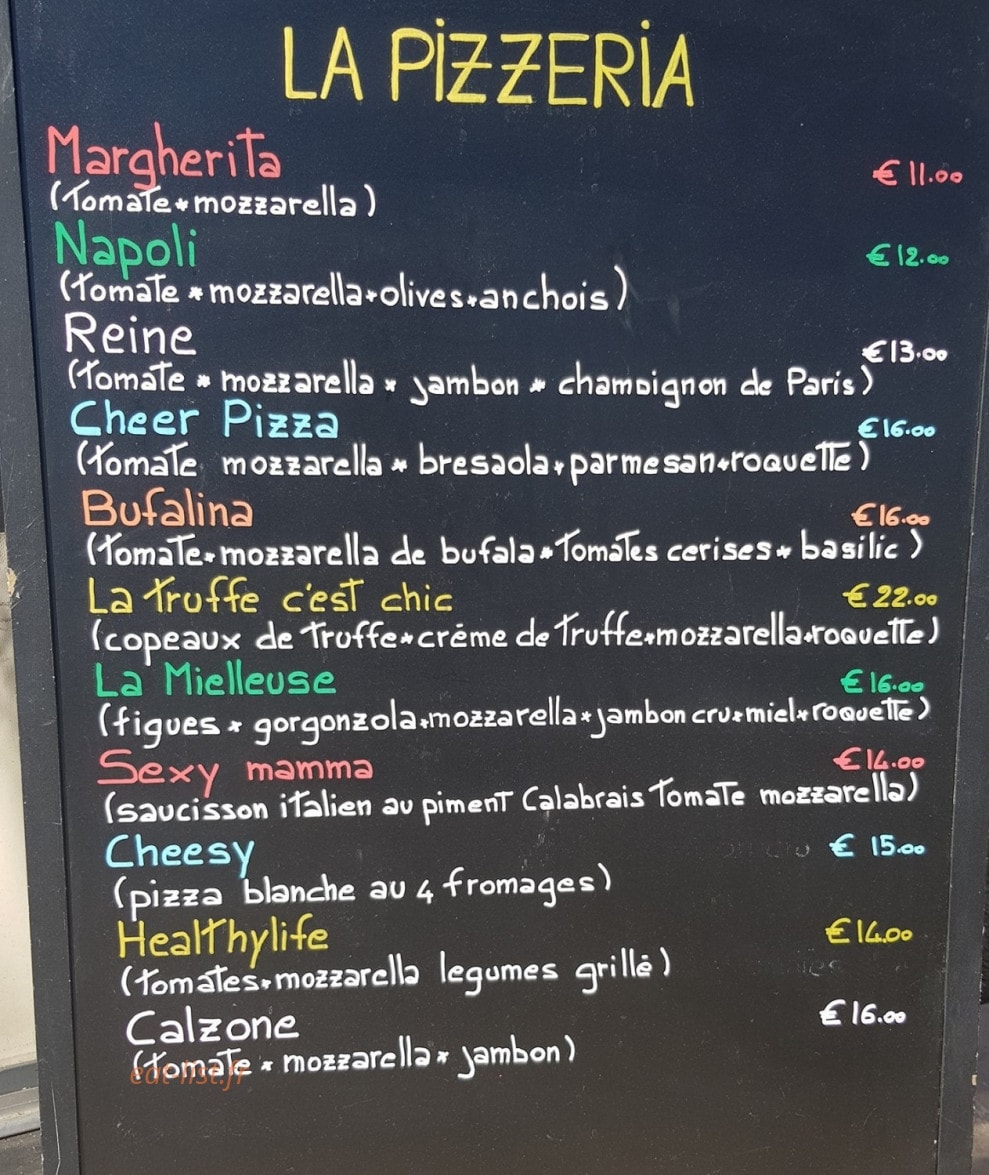 LA PIZZERIA
Margherita € 11.00
(Tomate*mozzarella)
Napoli € 12.00
(Tomate*mozzarella*olives*anchois)
Reine € 13.00
(Tomate * mozzarella * jambon * champignon de Paris)
Cheer Pizza € 16.00
(Tomate mozzarella * bresaola*parmesan*roquette)
Bufalina € 16.00
(Tomate*mozzarella de bufala*Tomates cerises* basilic)
La Truffe c'est chic € 22.00
(copeaux de Truffe*crème de Truffe*mozzarella*roquette)
La Mielleuse € 16.00
(figues * gorgonzola*mozzarella*jambon cru*miel*roquette)
Sexy mamma € 14.00
(saucisson italien au piment Calabrais Tomate mozzarella)
Cheesy € 15.00
(pizza blanche au 4 fromages)
Healthylife € 14.00
(Tomates*mozzarella legumes grillé)
Calzone € 16.00
(Tomate * mozzarella* jambon)
eat-list.fr